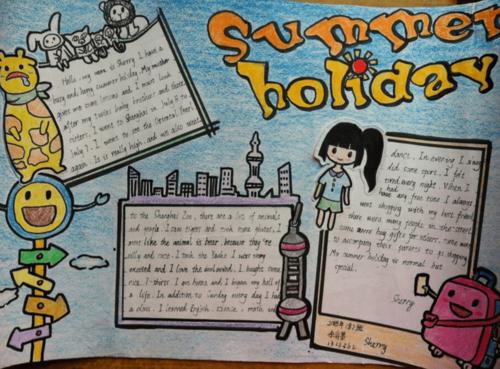 Summer
holiday
Hello, my name is Sherry. I have a
busy and happy summer holiday. My mother
gives me some lessons and I must look
after my twins baby brother and three
sisters. I went to Shanghai on July 6 to
July 7. I went to see the Oriental Pearl
again. It is really high. and we also went
to the Shanghai Zoo, there are a lot of animals
and people. I saw tigers and took some photos. I
like the animal is bear, because they're
silly and nice. I took the I was very
excited and I love the weekend. I bought some
nice T-shirts. I am brave and I began my
of a life. In addition to Sunday every day I had
a class. I learned English, science, math and
dance. In evening I always
did some sport. I felt
tired every night. When I
had any free time I always
went shopping with my best friend
there were many people in the street
some were buy gifts for others, some were
to accompany their parents to go shopping
My summer holiday is normal but
special.
Sherry
Sherry